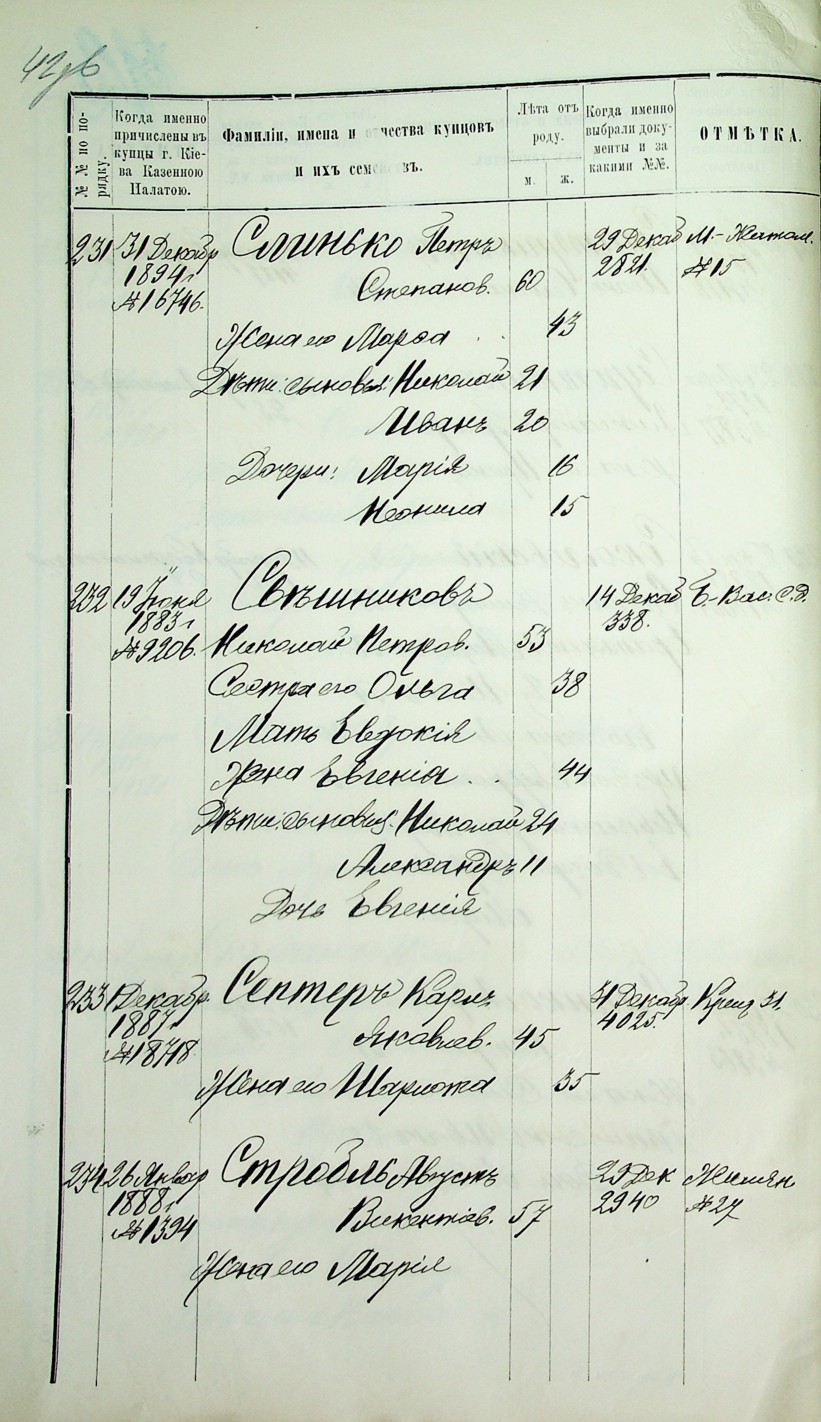 42 об
№ № по по-
рядку.
Когда именно
причислены въ
купцы г. Кіе-
ва Казенною
Палатою.
Фамиліи, имена и отчества купцовъ
и ихъ семействъ.
Лѣта отъ
роду.
м. ж.
Когда именно
выбрали доку-
менты и за
какими №№.
ОТМѢТКА.
231 31 Декабр Слинько Петръ 29 Декаб М.-Житом.
1894 г Степанов. 60 2821. № 15
№ 16746.
Жена его Марѳа 43
Дѣти: сыновья: Николай 21
Иванъ 20
Дочери: Марія 16
Неонила 15
232 19 Іюня Свѣшниковъ 14 Декаб Б.-Вас. с.д.
1883 г 338.
№ 9206. Николай Петров. 53
Сестра его Ольга 38
Мать Евдокія
Жена Евгенія 44
Дѣти: сыновья: Николай 24
Александръ 11
Дочь Евгенія
233 1 Декабр. Септеръ Карлъ 31 Декабр Крещ 31.
1887 г Яковлев. 45 4025.
№ 18718
Жена его Шарлота 35
234 26 Январ Стробль Августъ 29 Дек Жилян
1888 г Викентіев. 57 2940 № 27
№ 1394
Жена его Марія